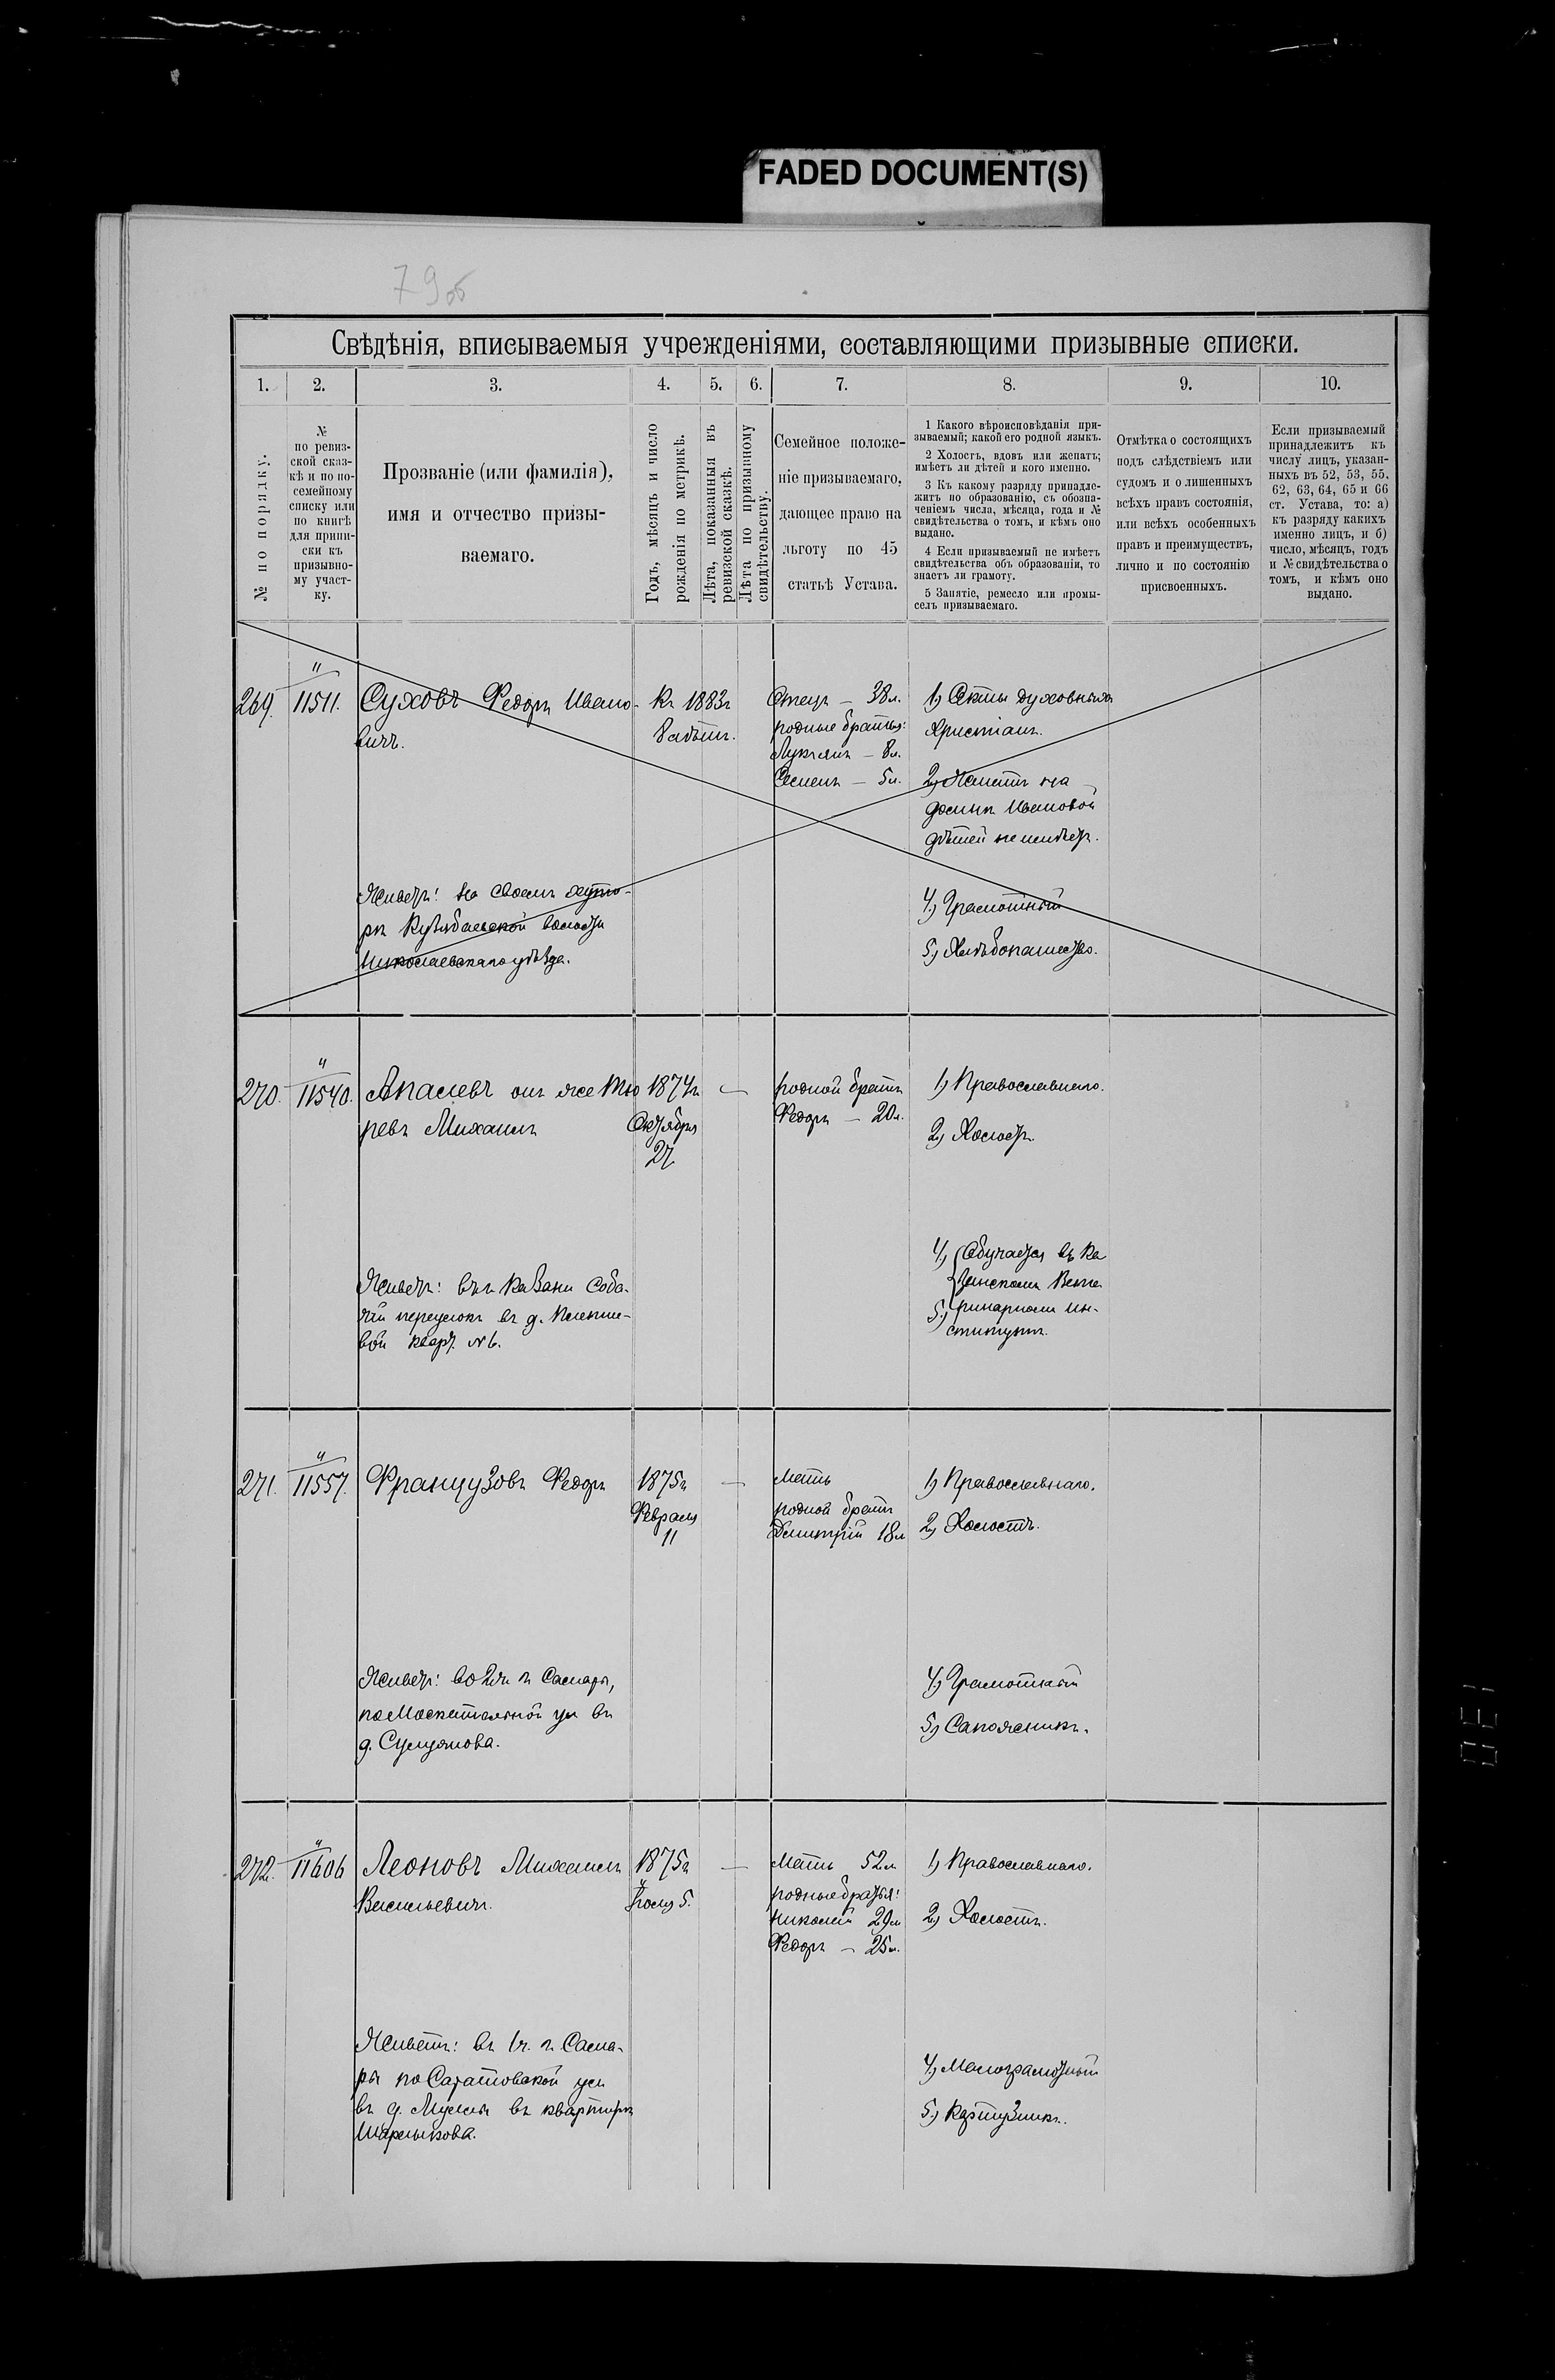 FADED DOCUMENT(S)
79 об
Свѣдѣнія, вписываемыя учрежденіями, составляющими призывные списки.
1. 2. 3. 4. 5. 6. 7. 8. 9. 10.
№ по порядку.
№
по ревиз-
ской сказ-
кѣ и по по-
семейному
списку или
по книгѣ
для припи-
ски къ
призывно-
му участ-
ку.
Прозваніе (или фамилія),
имя и отчество призы-
ваемаго.
Годъ, мѣсяцъ и число
рожденія по метрикѣ.
Лѣта, показанныя въ
ревизской сказкѣ.
Лѣта по призывному
свидѣтельству.
Семейное положе-
ніе призываемаго,
дающее право на
льготу по 45
статьѣ Устава.
1 Какого вѣроисповѣданія при-
зываемый; какой его родной языкъ.
2 Холостъ, вдовъ или женатъ;
имѣетъ ли дѣтей и кого именно.
3 Къ какому разряду принадле-
житъ по образованію, съ обозна-
ченіемъ числа, мѣсяца, года и №
свидѣтельства о томъ, и кѣмъ оно
выдано.
4 Если призываемый не имѣетъ
свидѣтельства объ образованіи, то
знаетъ ли грамоту.
5 Занятіе, ремесло или промы-
селъ призываемаго.
Отмѣтка о состоящихъ
подъ слѣдствіемъ или
судомъ и о лишенныхъ
всѣхъ правъ состоянія,
или всѣхъ особенныхъ
правъ и преимуществъ,
лично и по состоянію
присвоенныхъ.
Если призываемый
принадлежитъ къ
числу лицъ, указан-
ныхъ въ 52, 53, 55,
62, 63, 64, 65 и 66
ст. Устава, то: а)
къ разряду какихъ
именно лицъ, и б)
число, мѣсяцъ, годъ
и № свидѣтельства о
томъ, и кѣмъ оно
выдано.
269. "
11511. Суховъ Федоръ Ивано-
вичъ.
Къ 1883г
8 лѣтъ.
Отецъ – 38л.
родные братья:
Лукьянъ – 8л.
Семенъ – 5л.
1) Секты духовныхъ
Христіанъ.
2) Женатъ на
Ивановой
дѣтей не имѣетъ.
Живетъ: на своемъ хуто-
рѣ волости
Николаевскаго уѣзда.
4) Грамотный
5) Хлѣбопашество.
270. "
11540. Апалевъ онъ же Тю
ревъ Михаилъ
1874г
Октября
27
—
родной братъ
Федоръ – 20л.
1) Православнаго.
2) Холостъ.
Живетъ: въ г. Казани Соба-
чій переулокъ въ д.
кварт. № 6.
4) Обучается въ Ка
5) занскомъ Вете-
ринарномъ Ин-
ститутѣ.
271. "
11557. Французовъ Федоръ
1875г
Февраля
11
—
Мать
родной братъ
Дмитрій 18л
1) Православнаго.
2) Холостъ.
Живетъ: во 2 ч. г. Самары,
по Москательной ул въ
д.
4) Грамотный
5) Сапожникъ.
272. "
11606 Леоновъ Михаилъ
Васильевичъ.
1875г
Іюля 5.
—
Мать 52л
родные братья:
Николай 29л
Федоръ – 25л.
1) Православнаго.
2) Холостъ.
Живетъ: въ 1 ч. г. Сама-
ры по Саратовской ул
въ д. въ квартирѣ
Шарлыкова.
4) Малограмотный
5) Картузникъ.